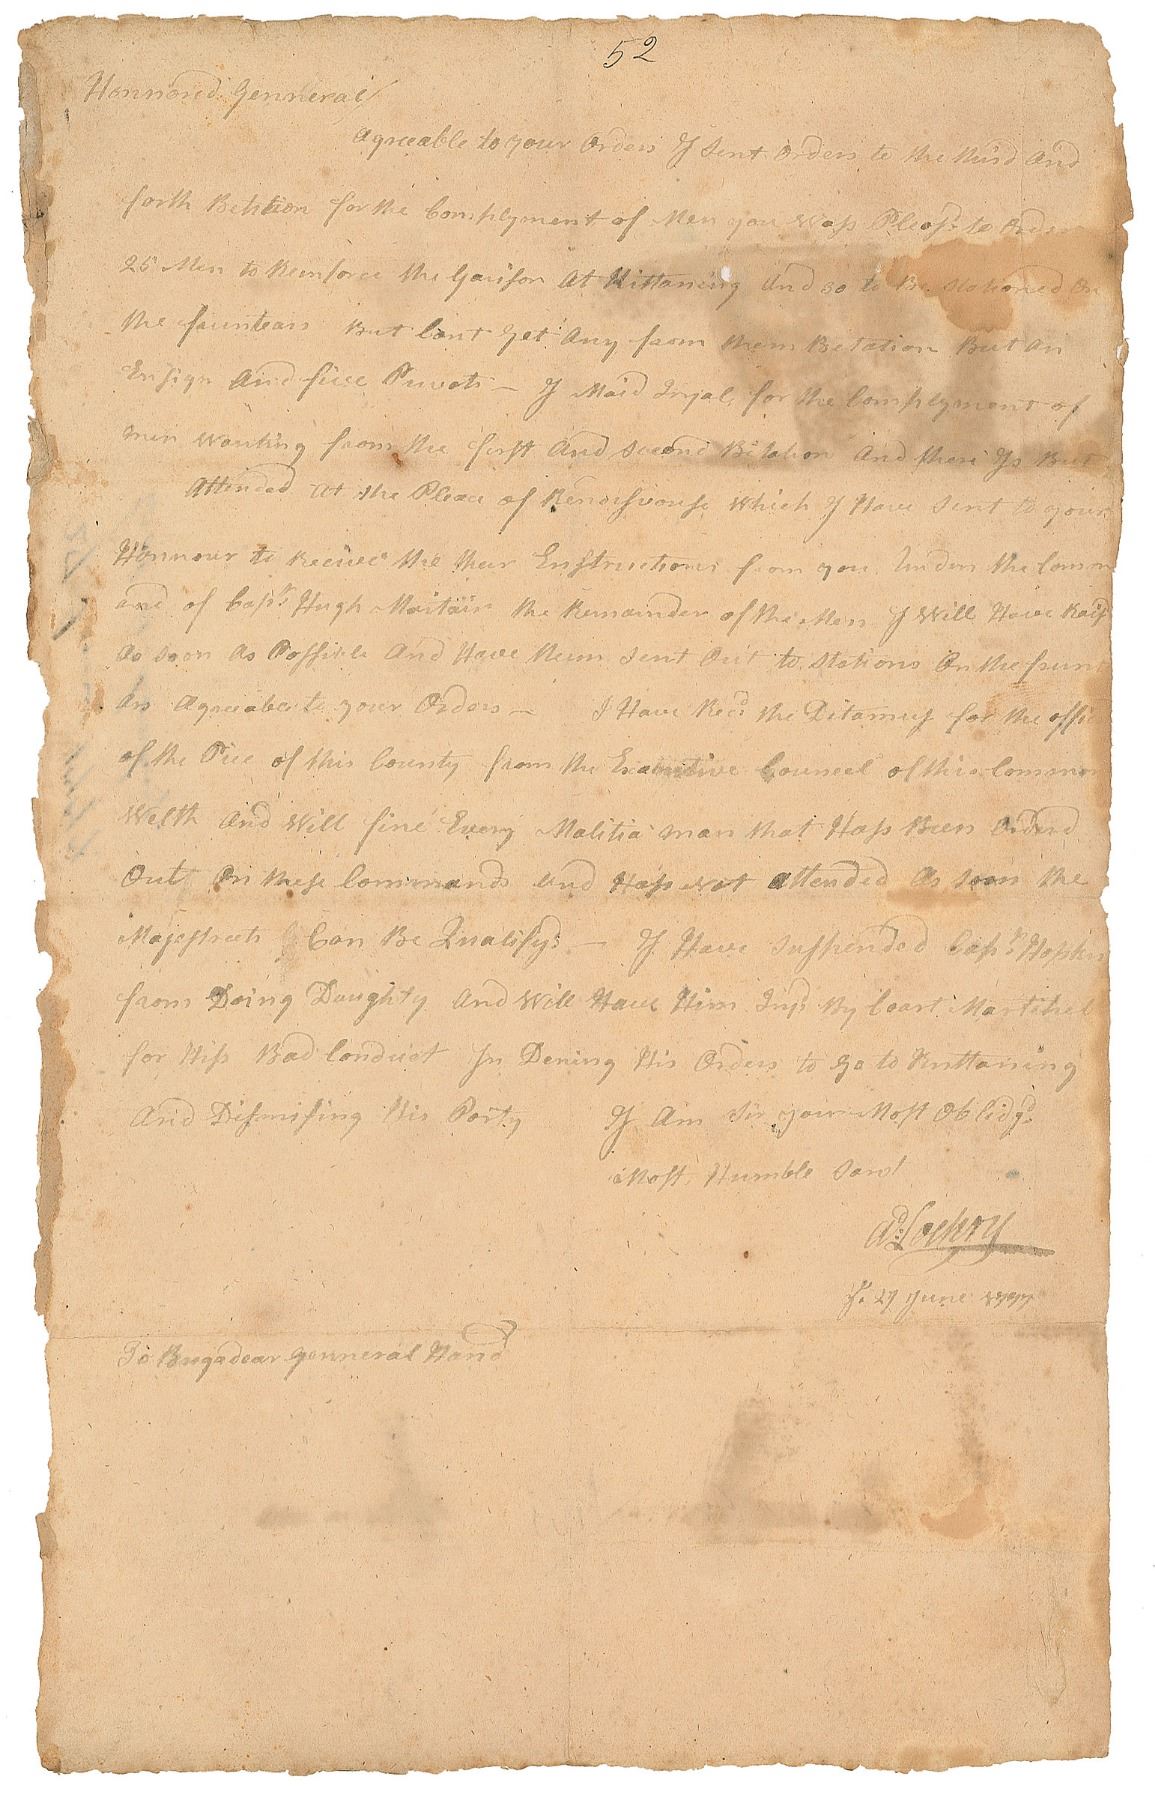 52
Honnored Genneral
Agreeable to your Orders I sent Orders to the third and
forth Betition for the Complyment of Men you Wass Pleasd to Order
25 Men to Reinforce the Garison At Kittaning And 30 to Be Stationed On
the fruntears But Cant Get Any from them Betation But An
Ensign And five Privats — I Maid Tryal for the Complyment of
men wanting from the first And Second Bitation And there Is But
Attended at the Place of Rendisvouse Which I Have Sent to your
Honnour to Recive the ther Enstructions from you Under the Comm
and of Capt Hugh Martain the Remainder of the Men I Will Have Rais
As soon As Possible And Have them sent Out to Stations On the frunt
ars Agreable to your Orders — I Have Recd the for the offic
of the Pice of this County from the Executive Councel of this Common
Welth And Will fine Every Malitia man that Hass Been Orderd
Out On these Commands and Hass not attended As soon the
Majestreets Can Be Qualifyd — I Have Suspended Capt Hopkin
from Doing Doughty And Will Have Him Tryd By Coart Martihel
for Hiss Bad Conduct In Dening His Orders to go to Kuttaning
And Dismising his Party I Am Sir your Most Oblidgd
Most Humble Sarvt
Ad: Lochry
27 June 1777
To Brigadear Genneral Hand